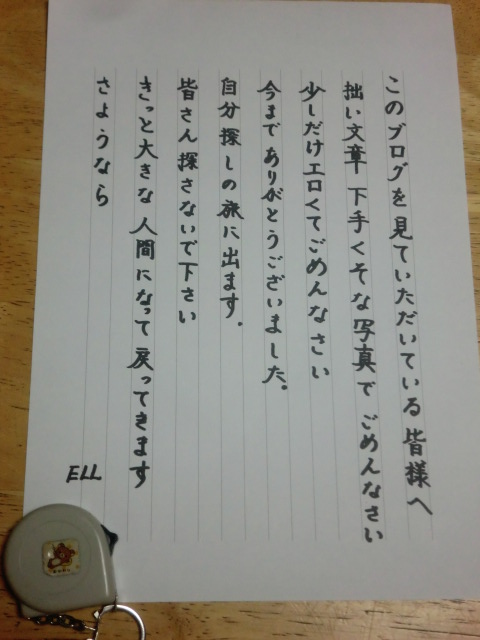 このブログを見ていただいている皆様へ
拙い文章 下手くそな写真で ごめんなさい
少しだけエロくてごめんなさい
今まで ありがとうございました。
自分探しの旅に出ます.
皆さん探さないで下さい
きっと大きな人間になって戻ってきます
さようなら
ELL